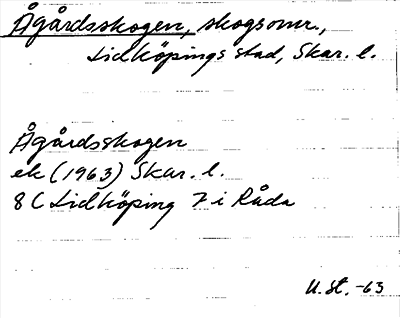 Ågårdsskogen, skogsomr.,
Lidköpings stad, Skar. l.
Ågårdsskogen
ek (1963) Skar. l.
8 C Lidköping 7 i Råda
U. St. -63